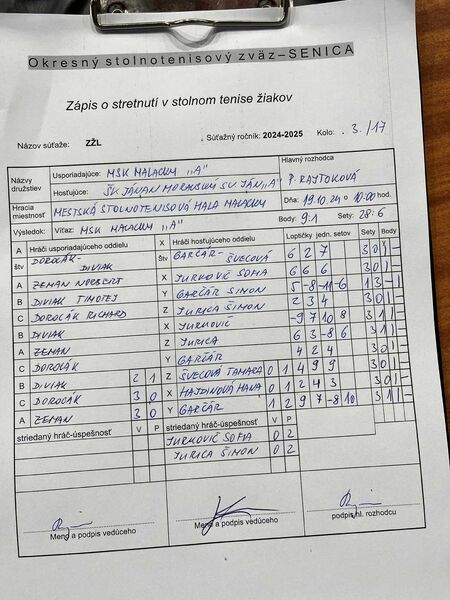 Okresný stolnotenisový zväz–SENICA
Zápis o stretnutí v stolnom tenise žiakov
Názov súťaže: ZŽL Súťažný ročník: 2024-2025 Kolo: 3./17
Názvy družstiev Usporiadajúce: MSK MALACKY "A" Hlavný rozhodca
Hosťujúce: ŠK JÁVAN MORAVSKÝ SV. JÁN "A" P. RAJTOKOVÁ
Hracia miestnosť MESTSKÁ STOLNOTENISOVÁ HALA MALACKY Dňa 19.10.24 o 10:00 hod.
Výsledok: Víťaz: MSK MALACKY "A" Body: 9:1 Sety: 28:6
A Hráči usporiadajúceho oddielu X Hráči hosťujúceho oddielu Loptičky jedn. setov Sety Body
štv DOROČÁK - DIVIAK Štv GARČÁR - ŠVECOVÁ 6 2 7 3 0 1 -
A ZEMAN NORBERT X JURKOVIČ SOFIA 6 6 6 3 0 1 -
B DIVIAK TIMOTEJ Y GARČÁR ŠIMON 5 -8 -11 -6 1 3 - 1
C DOROČÁK RICHARD Z JURICA ŠIMON 2 3 4 3 0 1 -
B DIVIAK X JURKOVIČ -9 7 10 8 3 1 1 -
A ZEMAN Z JURICA 6 3 -8 6 3 1 1 -
C DOROČÁK Y GARČÁR 4 2 4 3 0 1 -
B DIVIAK 2 1 Z ŠVECOVÁ TAMARA 0 1 4 9 9 3 0 1 -
C DOROČÁK 3 0 X HAJDINOVÁ HANA 0 1 2 4 3 3 0 1 -
A ZEMAN 3 0 Y GARČÁR 1 2 9 7 -8 10 3 1 1 -
striedaný hráč-úspešnosť V P striedaný hráč-úspešnosť V P
JURKOVIČ SOFIA 0 2
JURICA ŠIMON 0 2
Meno a podpis vedúceho Meno a podpis vedúceho podpis hl. rozhodcu